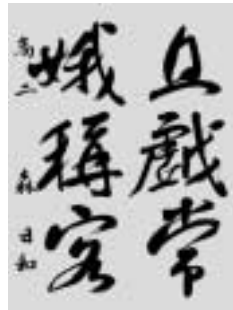 且戯常
娥稱客
高二 森 日和